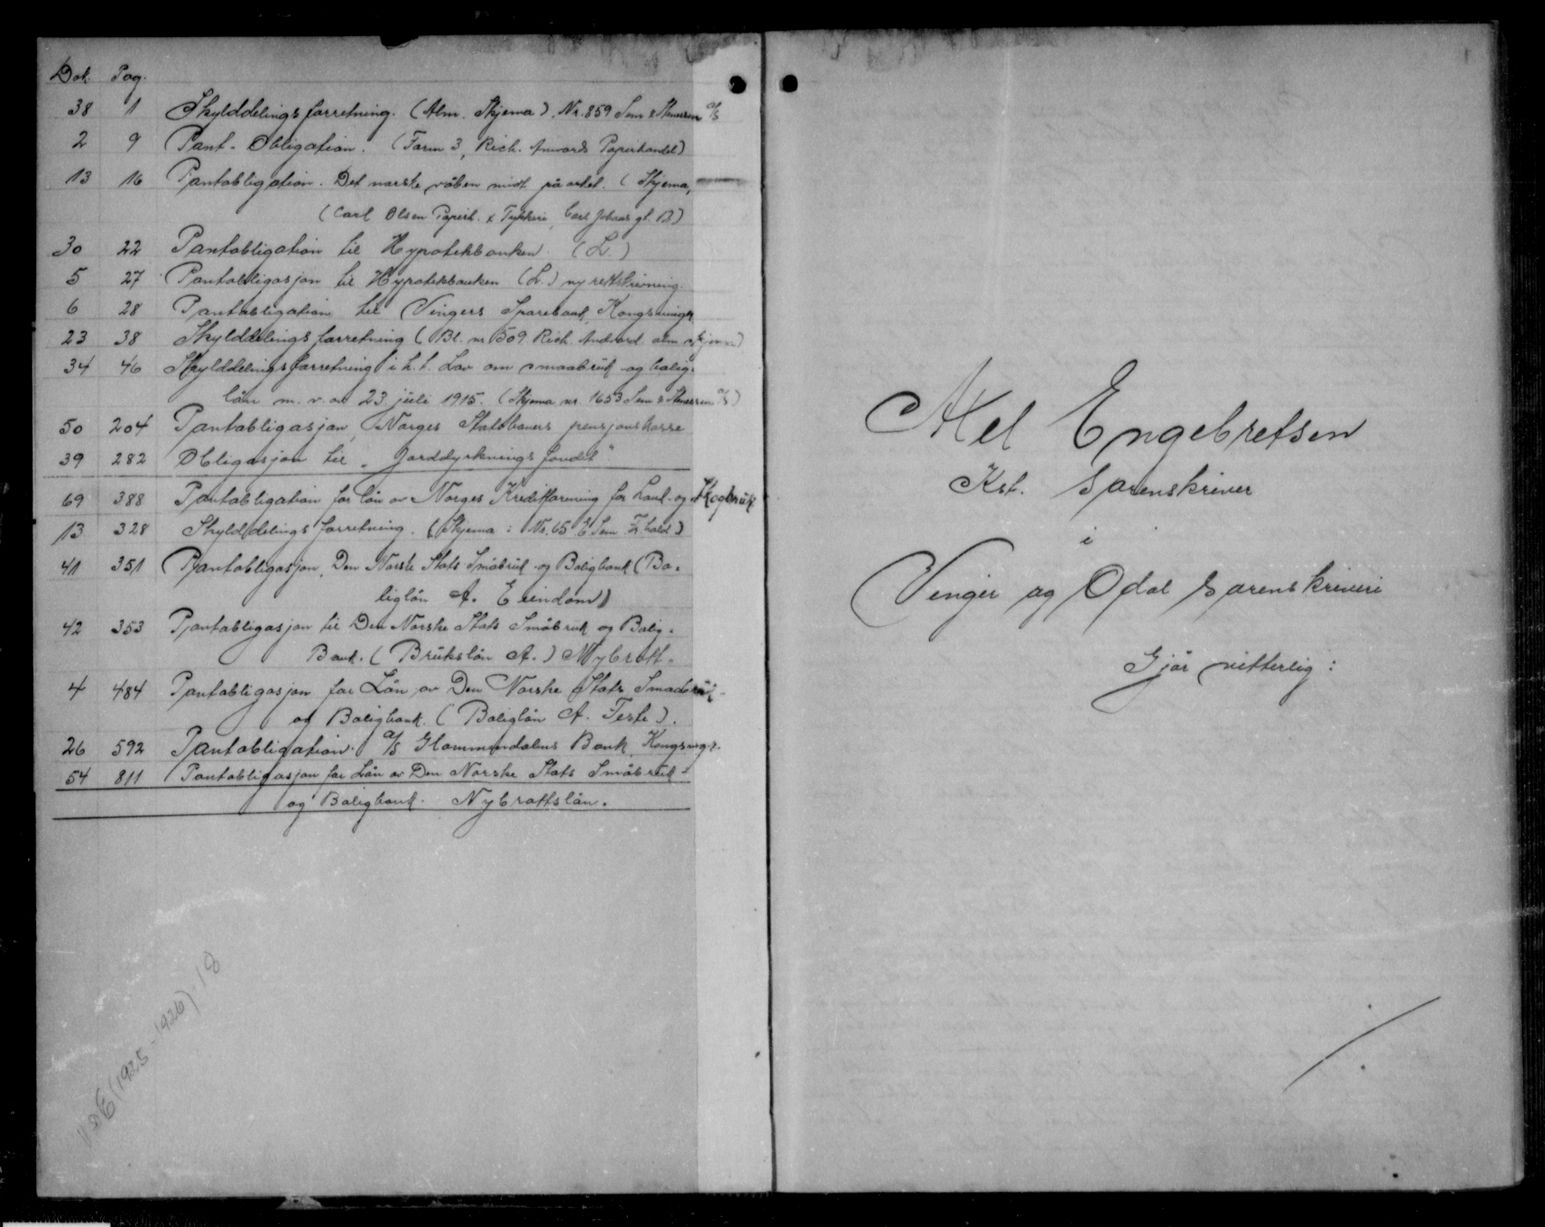 Dok. Pag.
38 1 Skylddelingsforretning. (Alm. Skjema). Nr. 859 Sem & Stenersen A/S
2 9 Pant-Obligation. (Form 3, Rich. Andvords Papirhandel)
13 16 Pantobligation. Det norske våben midt på arket. (Skjema,
(Carl Olsen Papirh. & Trykkeri, Carl Johans gt.
30 22 Pantobligation til Hypotekbanken. (L.)
5 27 Pantobligasjon til Hypotekbanken (L.) ny rettskrivning.
6 28 Pantobligation til Vingers Sparebank, Kongsvinger
23 38 Skylddelingsforretning (Bl. nr. 509 Rich. Andvord alm. skjema)
34 46 Skylddelingsforretning i h.t. Lov om smaabruk og bolig-
lån m.v. av 23. juli 1915. (Skjema nr. 1653 Sem & Stenersen A/S)
50 204 Pantobligasjon, Norges Statsbaners pensjonskasse
39 282 Obligasjon til "Jorddyrkningsfondet"
69 388 Pantobligation for lån av Norges Kreditforening for Land- og Skogbruk
13 328 Skylddelingsforretning. (Skjema: Nr. 65 E Sem Fr.hald)
41 351 Pantobligasjon, Den Norske Stats Småbruk- og Boligbank (Bo-
liglån A. Eiendom)
42 353 Pantobligasjon til Den Norske Stats Småbruk og Bolig-
Bank. (Brukslån A.) Nybrott.
4 484 Pantobligasjon for Lån av Den Norske Stats Smaabruk-
og Boligbank. (Boliglån A. Feste).
26 592 Pantobligation. A/S Glommendalens Bank, Kongsvgr.
54 811 Pantobligasjon for Lån av Den Norske Stats Småbruk-
og Boligbank. Nybrottslån.
(1925-1926). 18
Axel Engebretsen
Kst. Sorenskriver
i
Vinger og Odal sorenskriveri
Gjør vitterlig: